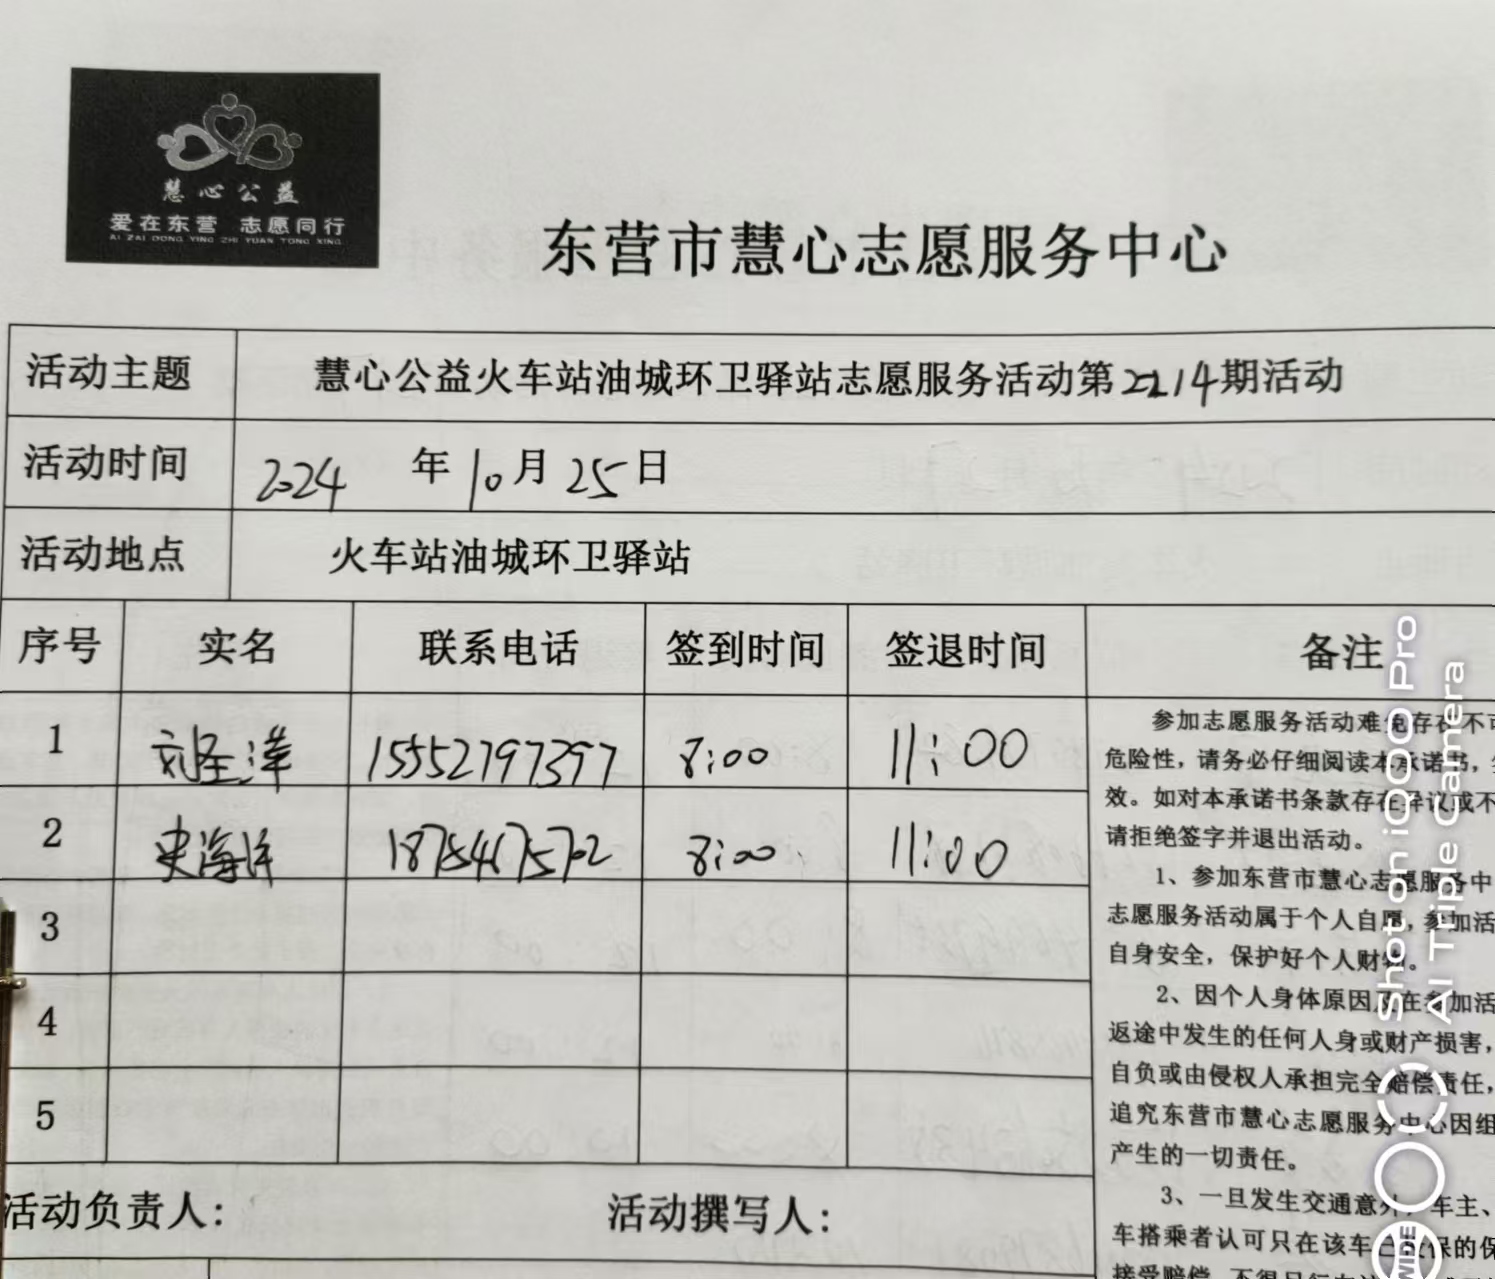 慧心公益
爱在东营 志愿同行
AI ZAI DONG YING ZHI YUAN TONG XING
东营市慧心志愿服务中心
活动主题 慧心公益火车站油城环卫驿站志愿服务活动第2214期活动
活动时间 2024 年 10月 25日
活动地点 火车站油城环卫驿站
序号 实名 联系电话 签到时间 签退时间 备注
1 刘圣洋 15552797397 8:00 11:00
2 史海洋 18754675702 8:00 11:00
3
4
5
参加志愿服务活动难免存在不可
危险性，请务必仔细阅读本承诺书，
效。如对本承诺书条款存在异议或不
请拒绝签字并退出活动。
1、参加东营市慧心志愿服务中
志愿服务活动属于个人自愿，参加活
自身安全，保护好个人财物。
2、因个人身体原因及在参加活
返途中发生的任何人身或财产损害，
自负或由侵权人承担完全赔偿责任，
追究东营市慧心志愿服务中心因组
产生的一切责任。
3、一旦发生交通意外，车主、
车搭乘者认可只在该车已投保的保
接受赔偿，不得
活动负责人： 活动撰写人：
Shot on iQOO Pro
AI Triple Camera
WIDE